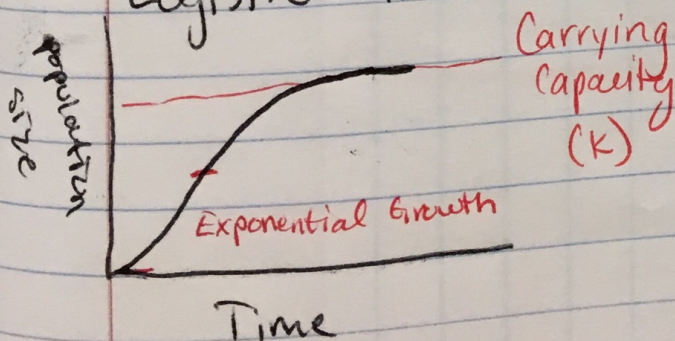 Logistic
population
size
Carrying
Capacity
(K)
Exponential Growth
Time